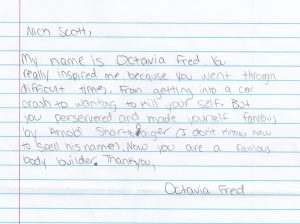 Nick Scott,
My name is Octavia Fred. You
really inspired me because you went through
difficult times. From getting into a car
crash to wanting to kill your self. But
you perservered and made yourself famous
by Arnold Shartzaiger (I don't know how
to spell his name). Now you are a famous
body builder. Thankyou,
Octavia Fred